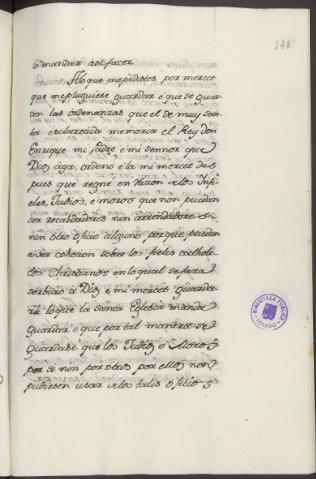 148
le mandar así facer.
A lo que me pedistes por mercet
que me pluguiese guardar e que se guar
den las ordenanzas que el de muy san
ta esclarecida memoria el Rey don
Enrique mi padre e mi sennor que
Dios aya, ordenó e la mi mercet des
pues que regné en razon de los Infi
eles, Judios, e moros que non puedan
ser recabdadores nin arrendadores ni
nin otro oficio alguno por que puedan
aver cohercion sobre los fieles catholi
cos Christianos en lo qual se fara
serbicio a Dios e mi mercet guarda
rá lo que la santa Eglesia manda
guardar e que por tal manera se
guardase que los Judios e Moros
por si nin por otros por ellos non
pudiesen usar de los tales oficios
BIBLIOTECA PÚBLICA
TOLEDO